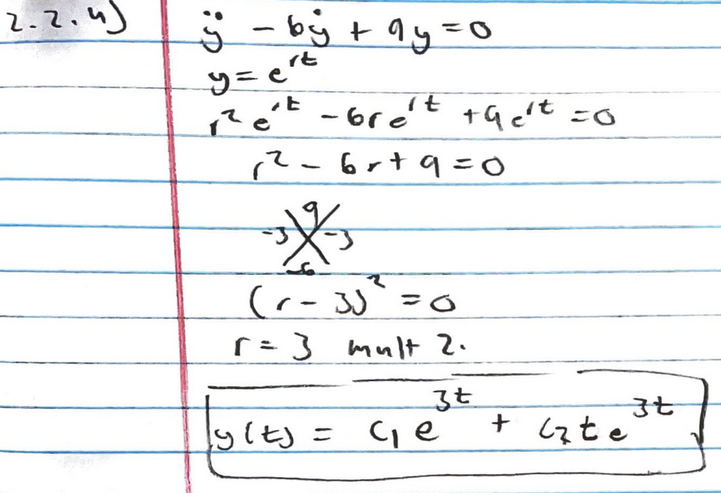 2.2.4) ÿ - 6ẏ + 9y = 0
y = e^{rt}
r² e^{rt} - 6re^{rt} + 9e^{rt} = 0
r² - 6r + 9 = 0
9
-3 -3
-6
(r - 3)² = 0
r = 3 mult 2.
y(t) = c₁ e^{3t} + c₂ t e^{3t}